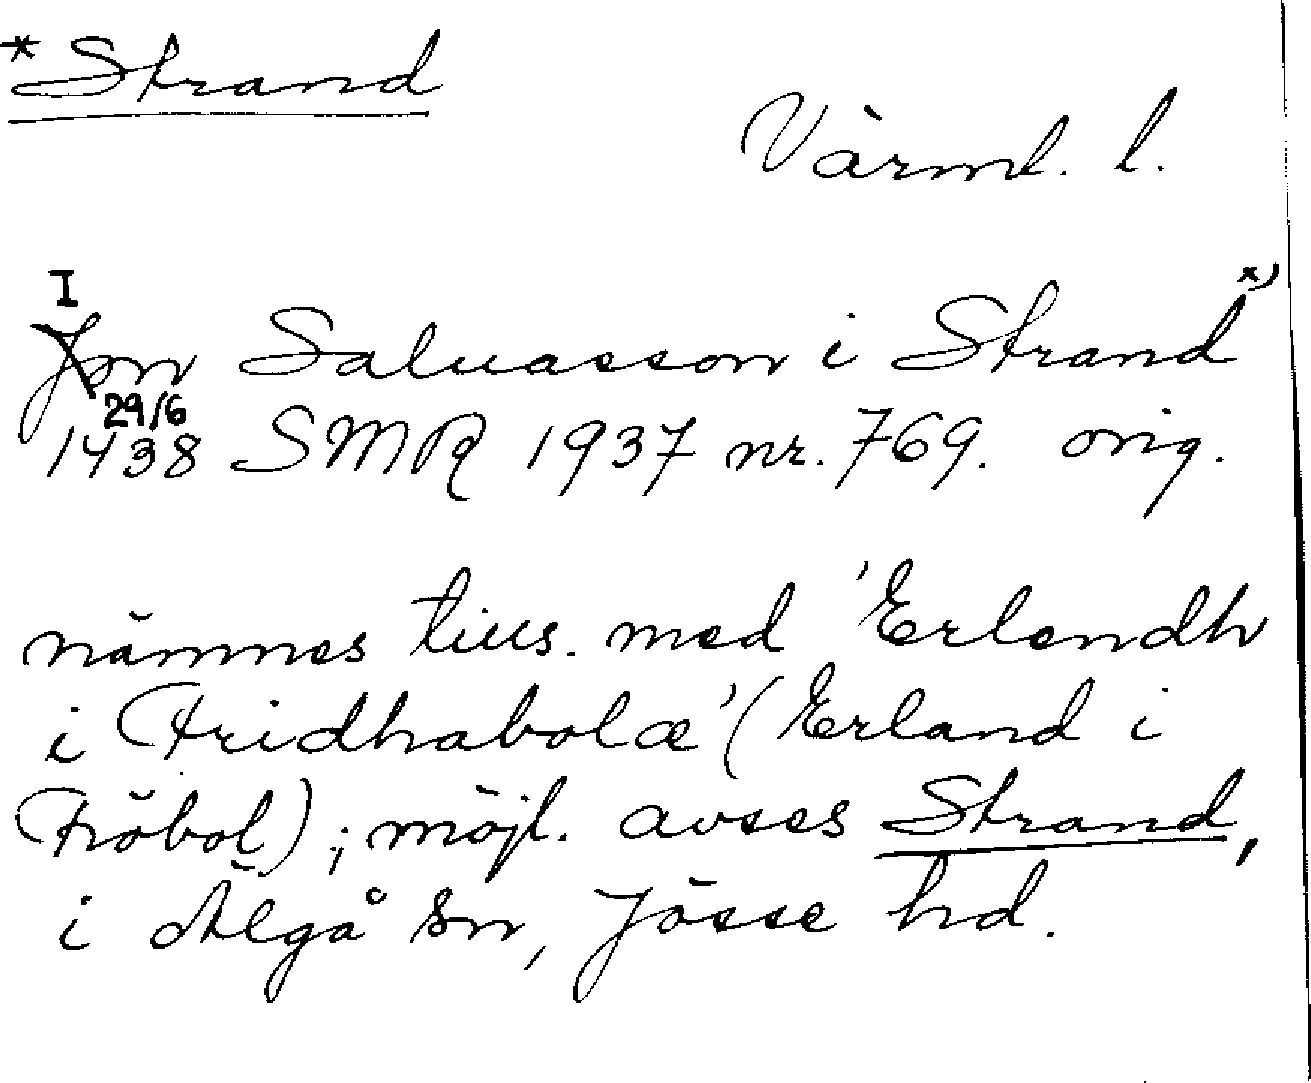 *Strand
Värml. l.
I
Jon Saluasson i Strand x)
29/6
1438 SMR 1937 nr. 769. orig.
nämnes tills. med 'Erlendh
i Fridhabolæ' (Erland i
Fröbol); möjl. avses Strand,
i Älgå sn, Jösse hd.